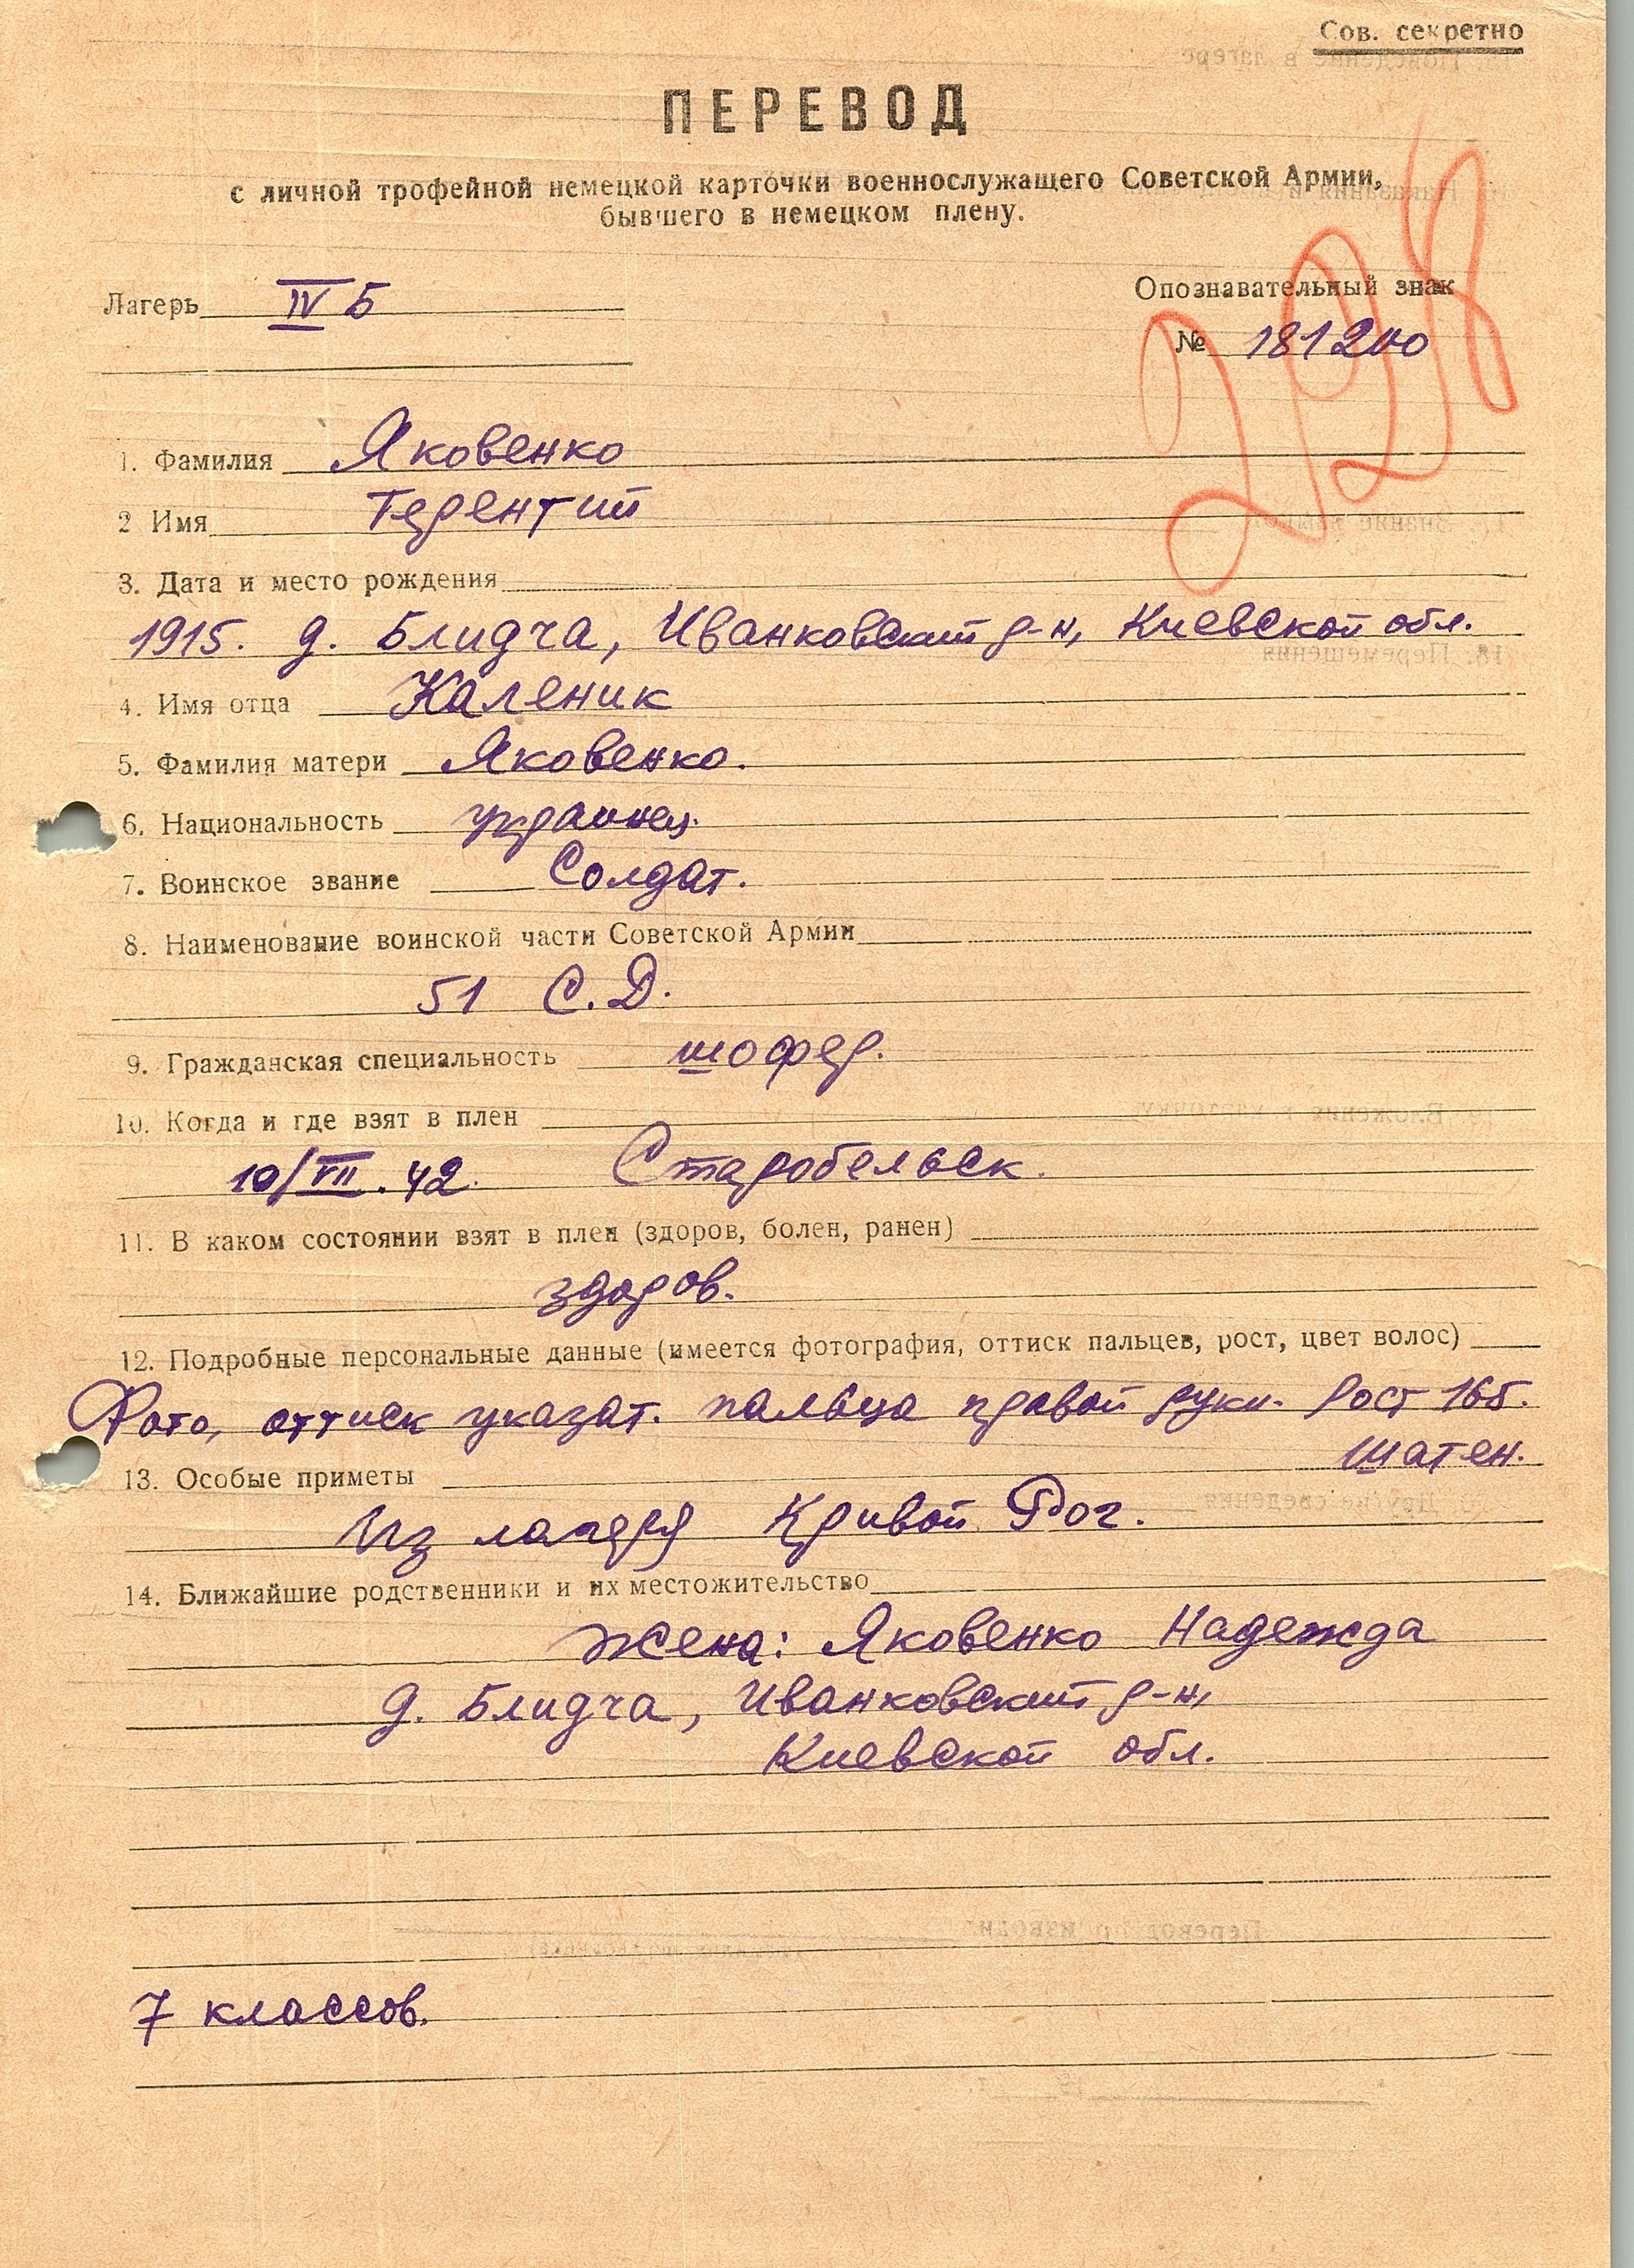 Сов. секретно
ПЕРЕВОД
с личной трофейной немецкой карточки военнослужащего Советской Армии,
бывшего в немецком плену.
Лагерь IV Б
Опознавательный знак
№ 181200
298
1. Фамилия Яковенко
2 Имя Терентий
3. Дата и место рождения
1915. д. Блидча, Иванковский р-н, Киевской обл.
4. Имя отца Каленик
5. Фамилия матери Яковенко.
6. Национальность украинец.
7. Воинское звание Солдат.
8. Наименование воинской части Советской Армии
51 С.Д.
9. Гражданская специальность шофер.
10. Когда и где взят в плен
10/VII.42. Старобельск.
11. В каком состоянии взят в плен (здоров, болен, ранен)
здоров.
12. Подробные персональные данные (имеется фотография, оттиск пальцев, рост, цвет волос)
Фото, оттиск указат. пальца правой руки. Рост 165.
шатен.
13. Особые приметы
Из лагеря Кривой Рог.
14. Ближайшие родственники и их местожительство
Жена: Яковенко Надежда
д. Блидча, Иванковский р-н,
Киевской обл.
7 классов.